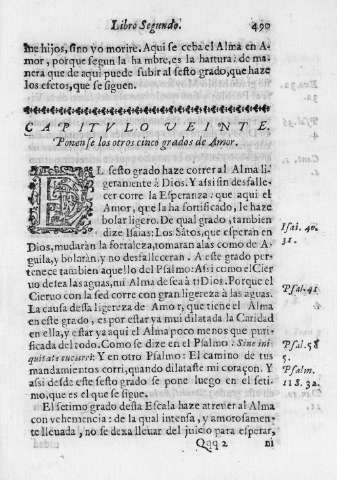 Libro Segundo. 490
me hijos, sino yo morire. Aqui se ceba el Alma en A-
mor, porque segun la hambre, es la hartura: de ma-
nera que de aqui puede subir al sesto grado, que haze
los efetos, que se siguen.
CAPITVLO VEINTE.
Ponense los otros cinco grados de Amor.
EL sesto grado haze correr al Alma li-
geramente à Dios. Y assi sin desfalle-
cer corre la Esperanza: que aqui el
Amor, que la ha fortificado, le haze
bolar ligero. De qual grado, tambien
dize Isaias: Los Sãtos, que esperan en
Dios, mudaràn la fortaleza, tomaràn alas como de A-
guila, y bolaràn, y no desfalleceràn. A este grado per-
tenece tambien aquello del Psalmo: Assi como el Cier
vo desea las aguas, mi Alma desea à ti Dios. Porque el
Ciervo con la sed corre con gran ligereza à las aguas.
La causa desta ligereza de Amor, que tiene el Alma
en este grado, es por estar ya mui dilatada la Caridad
en ella, y estar ya aqui el Alma poco menos que puri-
ficada del todo. Como se dize en el Psalmo: Sine ini
quitate cucurri: Y en otro Psalmo: El camino de tus
mandamientos corri, quando dilataste mi coraçon. Y
assi desde este sesto grado se pone luego en el seti-
mo, que es el que se sigue.
El setimo grado desta Escala haze atrever al Alma
con vehemencia: de la qual intensa, y amorosamen-
te llevada, no se dexa llevar del juicio para esperar,
Qqq 2 ni
Isai. 40.
31.
Psal. 41
Psal. 58
5.
Psalm.
118. 32.